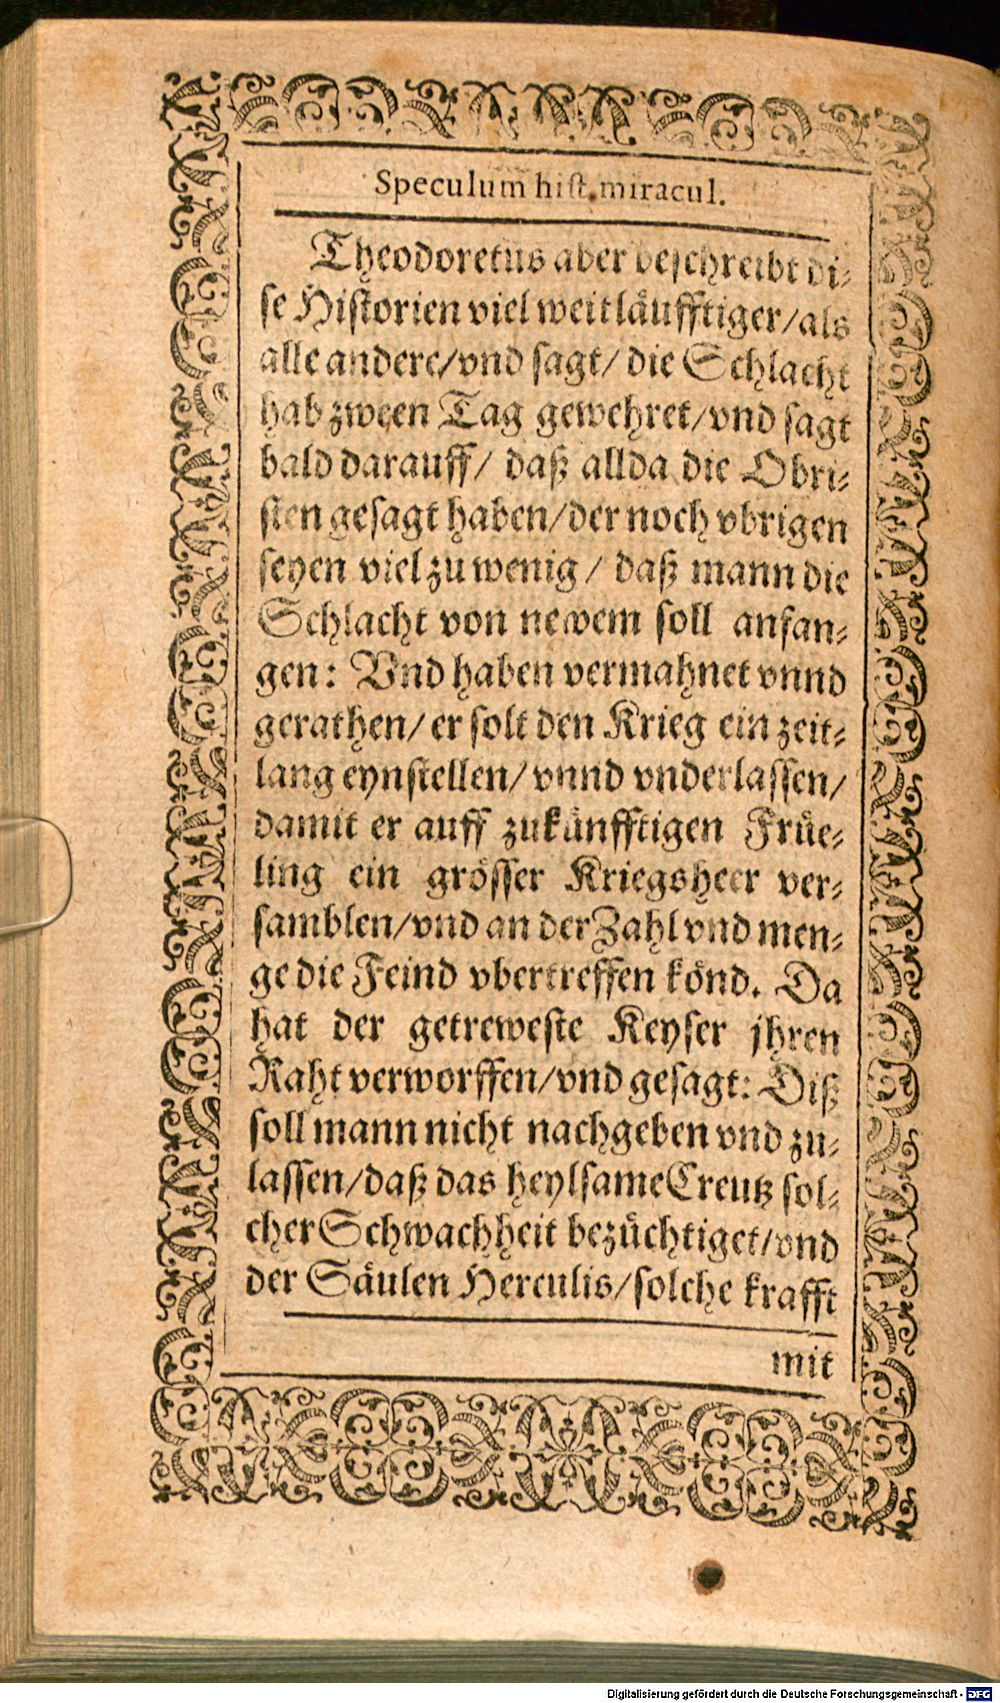 Speculum hist. miracul.
Theodoretus aber beschreibt di-
se Historien viel weitläufftiger/als
alle andere/vnd sagt/ die Schlacht
hab zween Tag gewehret/vnd sagt
bald darauff/ daß allda die Obri-
sten gesagt haben/der noch vbrigen
seyen viel zu wenig/ daß mann die
Schlacht von newem soll anfan-
gen: Vnd haben vermahnet vnnd
gerathen/ er solt den Krieg ein zeit-
lang eynstellen/ vnnd vnderlassen/
damit er auff zukünfftigen Früe-
ling ein grösser Kriegsheer ver-
samblen/vnd an der Zahl vnd men-
ge die Feind vbertreffen könd. Da
hat der getreweste Keyser jhren
Raht verworffen/vnd gesagt: Diß
soll mann nicht nachgeben vnd zu-
lassen/daß das heylsame Creutz sol-
cher Schwachheit bezüchtiget/vnd
der Säulen Herculis/solche krafft
mit
Digitalisierung gefördert durch die Deutsche Forschungsgemeinschaft - DFG